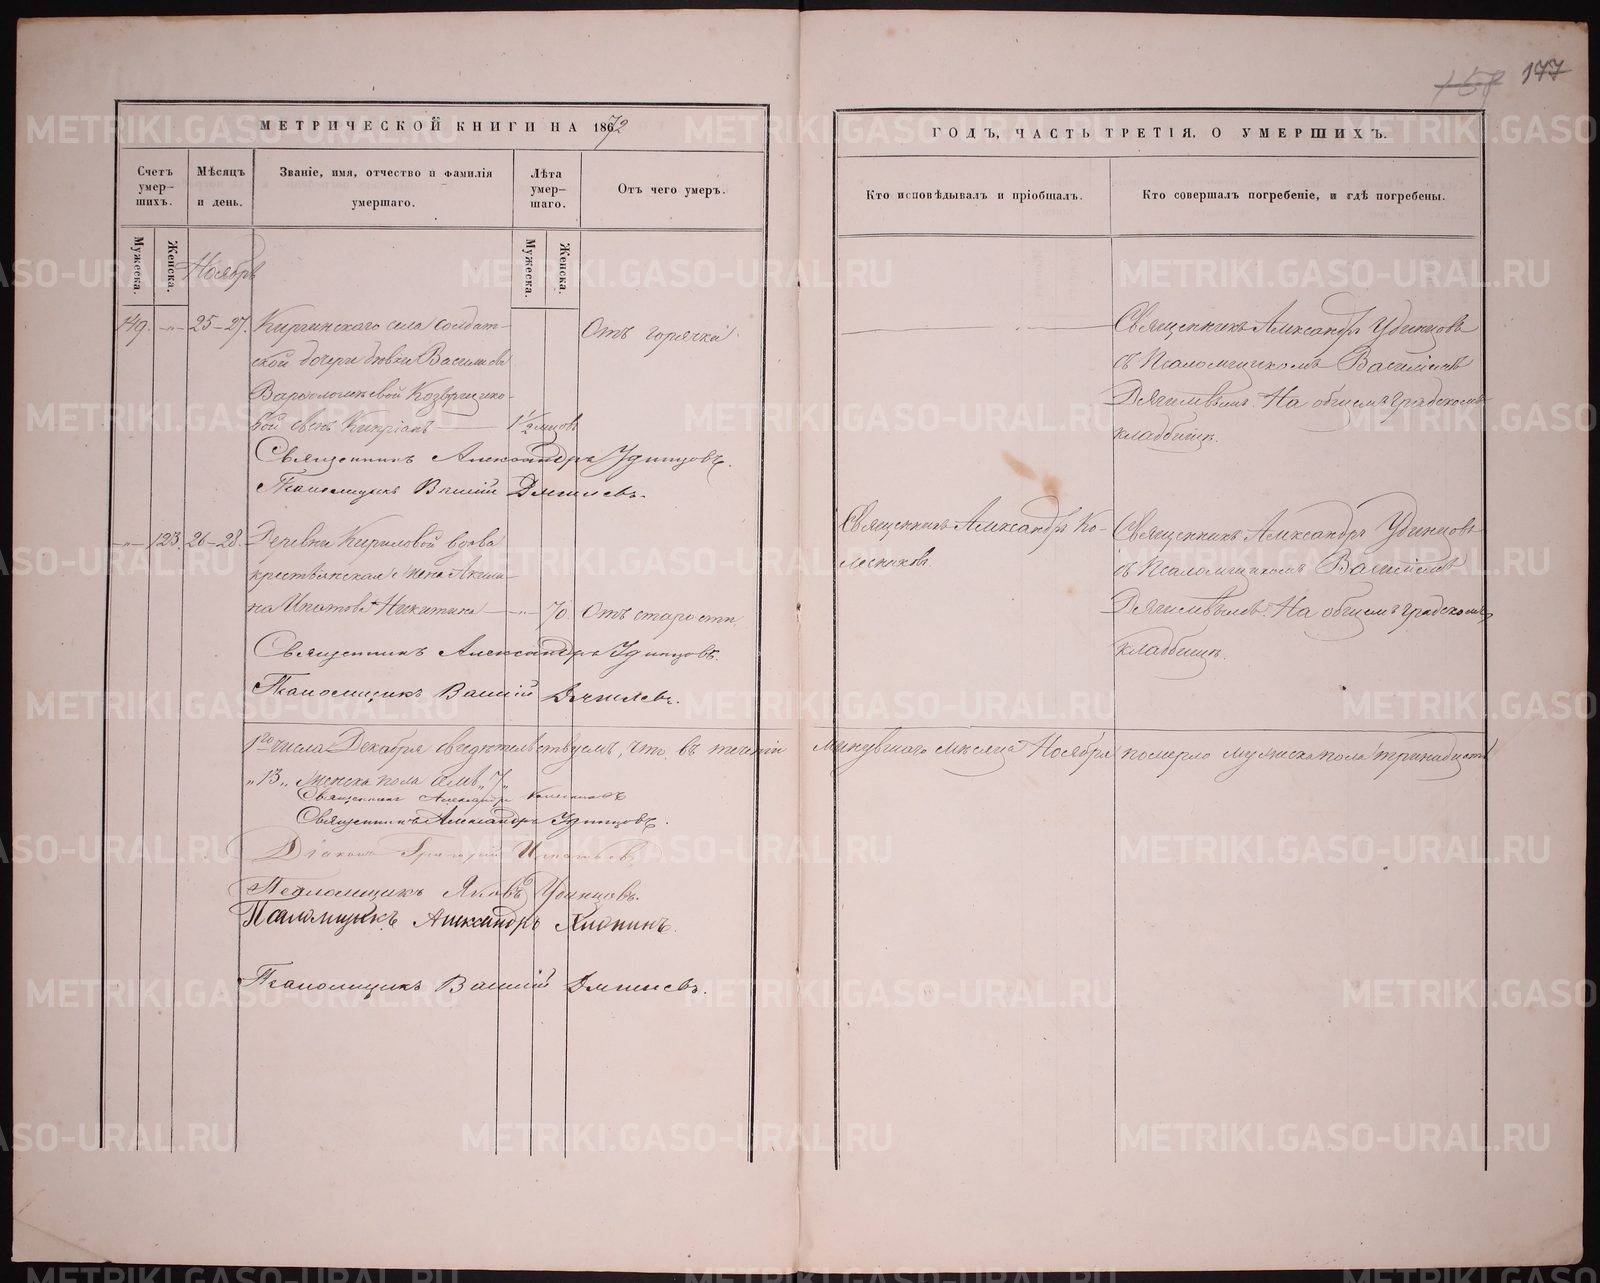 158 177
МЕТРИЧЕСКОЙ КНИГИ НА 1872
ГОДЪ, ЧАСТЬ ТРЕТІЯ, О УМЕРШИХЪ.
Счетъ умер-
шихъ.
Мѣсяцъ
и день.
Званіе, имя, отчество и фамилія
умершаго.
Лѣта
умер-
шаго.
Отъ чего умеръ.
Кто исповѣдывалъ и пріобщалъ.
Кто совершалъ погребеніе, и гдѣ погребены.
Мужеска.
Женска.
Мужеска.
Женска.
Ноябрь
149. -„- 25-27. Киргинскаго села солдат-
ской дочери дѣвки Василисы
Варѳоломѣевой
сынъ Кипріанъ 1½ мцовъ
Отъ горячки.
Священникъ Александръ Удинцовъ
съ Псаломщикомъ Василіемъ
На общемъ градскомъ
кладбищѣ.
Священникъ Александръ Удинцовъ.
Псаломщикъ Василій
-„- 123. 26-28. Деревни Кириловой вдова
крестьянская жена Акили-
на Ипатова Никитина -„- 70. Отъ старости.
Священникъ Александръ Ко-
лесниковъ
Священникъ Александръ Удинцовъ
съ Псаломщикомъ Василіемъ
На общемъ градскомъ
кладбищѣ.
Священникъ Александръ Удинцовъ.
Псаломщикъ Василій
1го числа Декабря свидѣтельствуемъ, что въ теченіи минувшаго мѣсяца Ноября померло мужеска пола тринадцать
„13„ женска пола семь „7„
Священникъ Александръ Колесниковъ
Священникъ Александръ Удинцовъ.
Діаконъ Григорій Игнатьевъ
Псаломщикъ Яковъ Удинцовъ.
Псаломщикъ Александръ
Псаломщикъ Василій
METRIKI.GASO-URAL.RU